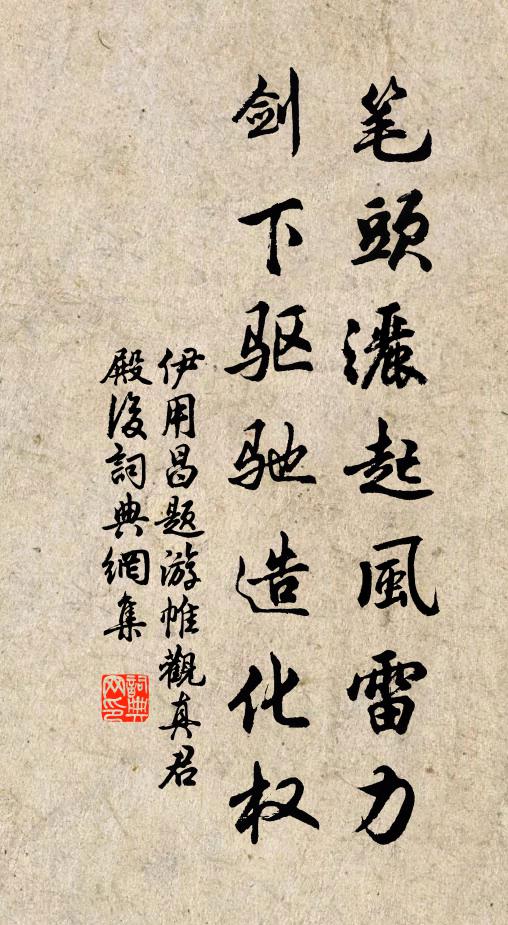 笔頭灑起風雷力
剑下驱驰造化权
伊用昌题游帷觀真君
殿後詞典網集
詞典网印